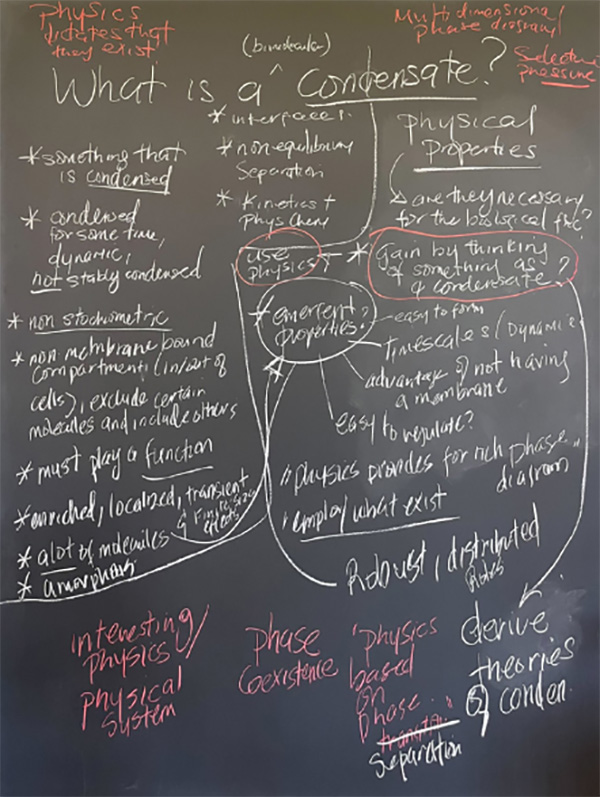 Physics
dictates that
they exist
Multidimensional
phase diagram
Selective
pressure
(bimolecular)
What is a ^ Condensate?
* something that
is condensed
* condensed
for some time,
dynamic,
not stably condensed
* non stochometric
* non membrane bound
compartments (in/out of
cells), exclude certain
molecules and include others
* must play a function
* enriched, localized, transient
* a lot of molecules & finite size effects
* amorphous
* interfaces!
* nonequilibrium
Separation
* Kinetics +
Phys Chem
use
physics
* emergent
properties
Physical
Properties
are they necessary
for the biological fxc?
* Gain by thinking
of something as
a condensate?
- easy to form
timescales / Dynamics
advantage of not having
a membrane
easy to regulate?
"physics provides for rich phase
diagram"
"employ what exist
Robust, distributed
derive
theories
of conden.
interesting/
physics
physical
system
phase
Coexistence
"physics
based
on
phase ..."
transition
separation